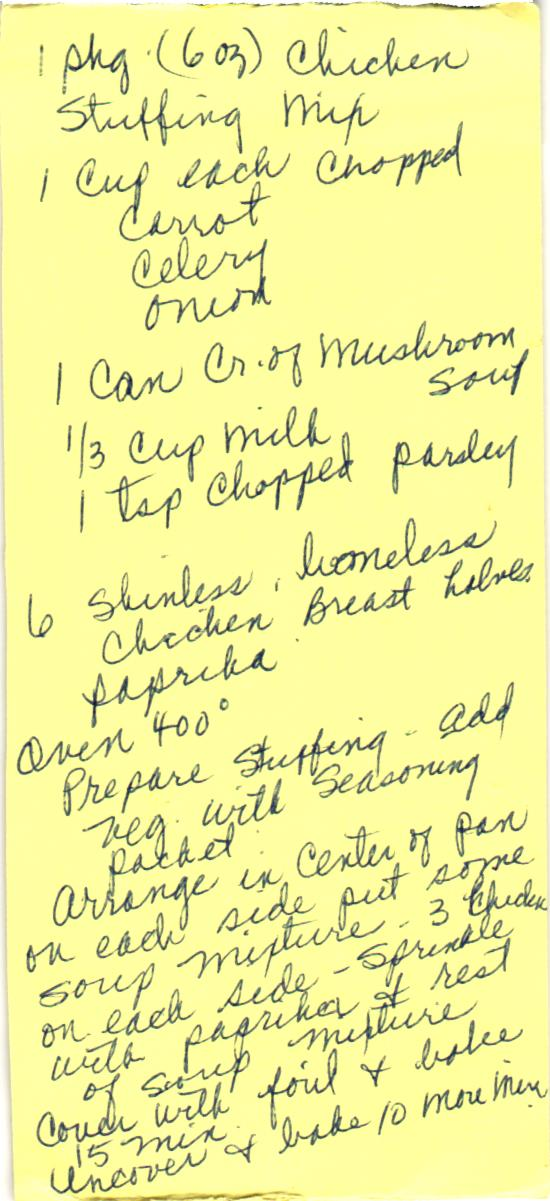 1 pkg (6 oz) Chicken
Stuffing Mix
1 Cup each Chopped
Carrot
Celery
Onion
1 Can Cr. of Mushroom
Soup
1/3 Cup Milk
1 tsp Chopped parsley
6 Skinless, boneless
Chicken Breast halves
paprika
Oven 400°
Prepare Stuffing - add
veg. with Seasoning
packet.
Arrange in Center of pan
on each side put some
soup mixture - 3 Chicken
on each side - Sprinkle
with paprika & rest
of soup mixture
Cover with foil & bake
15 min.
Uncover & bake 10 more min